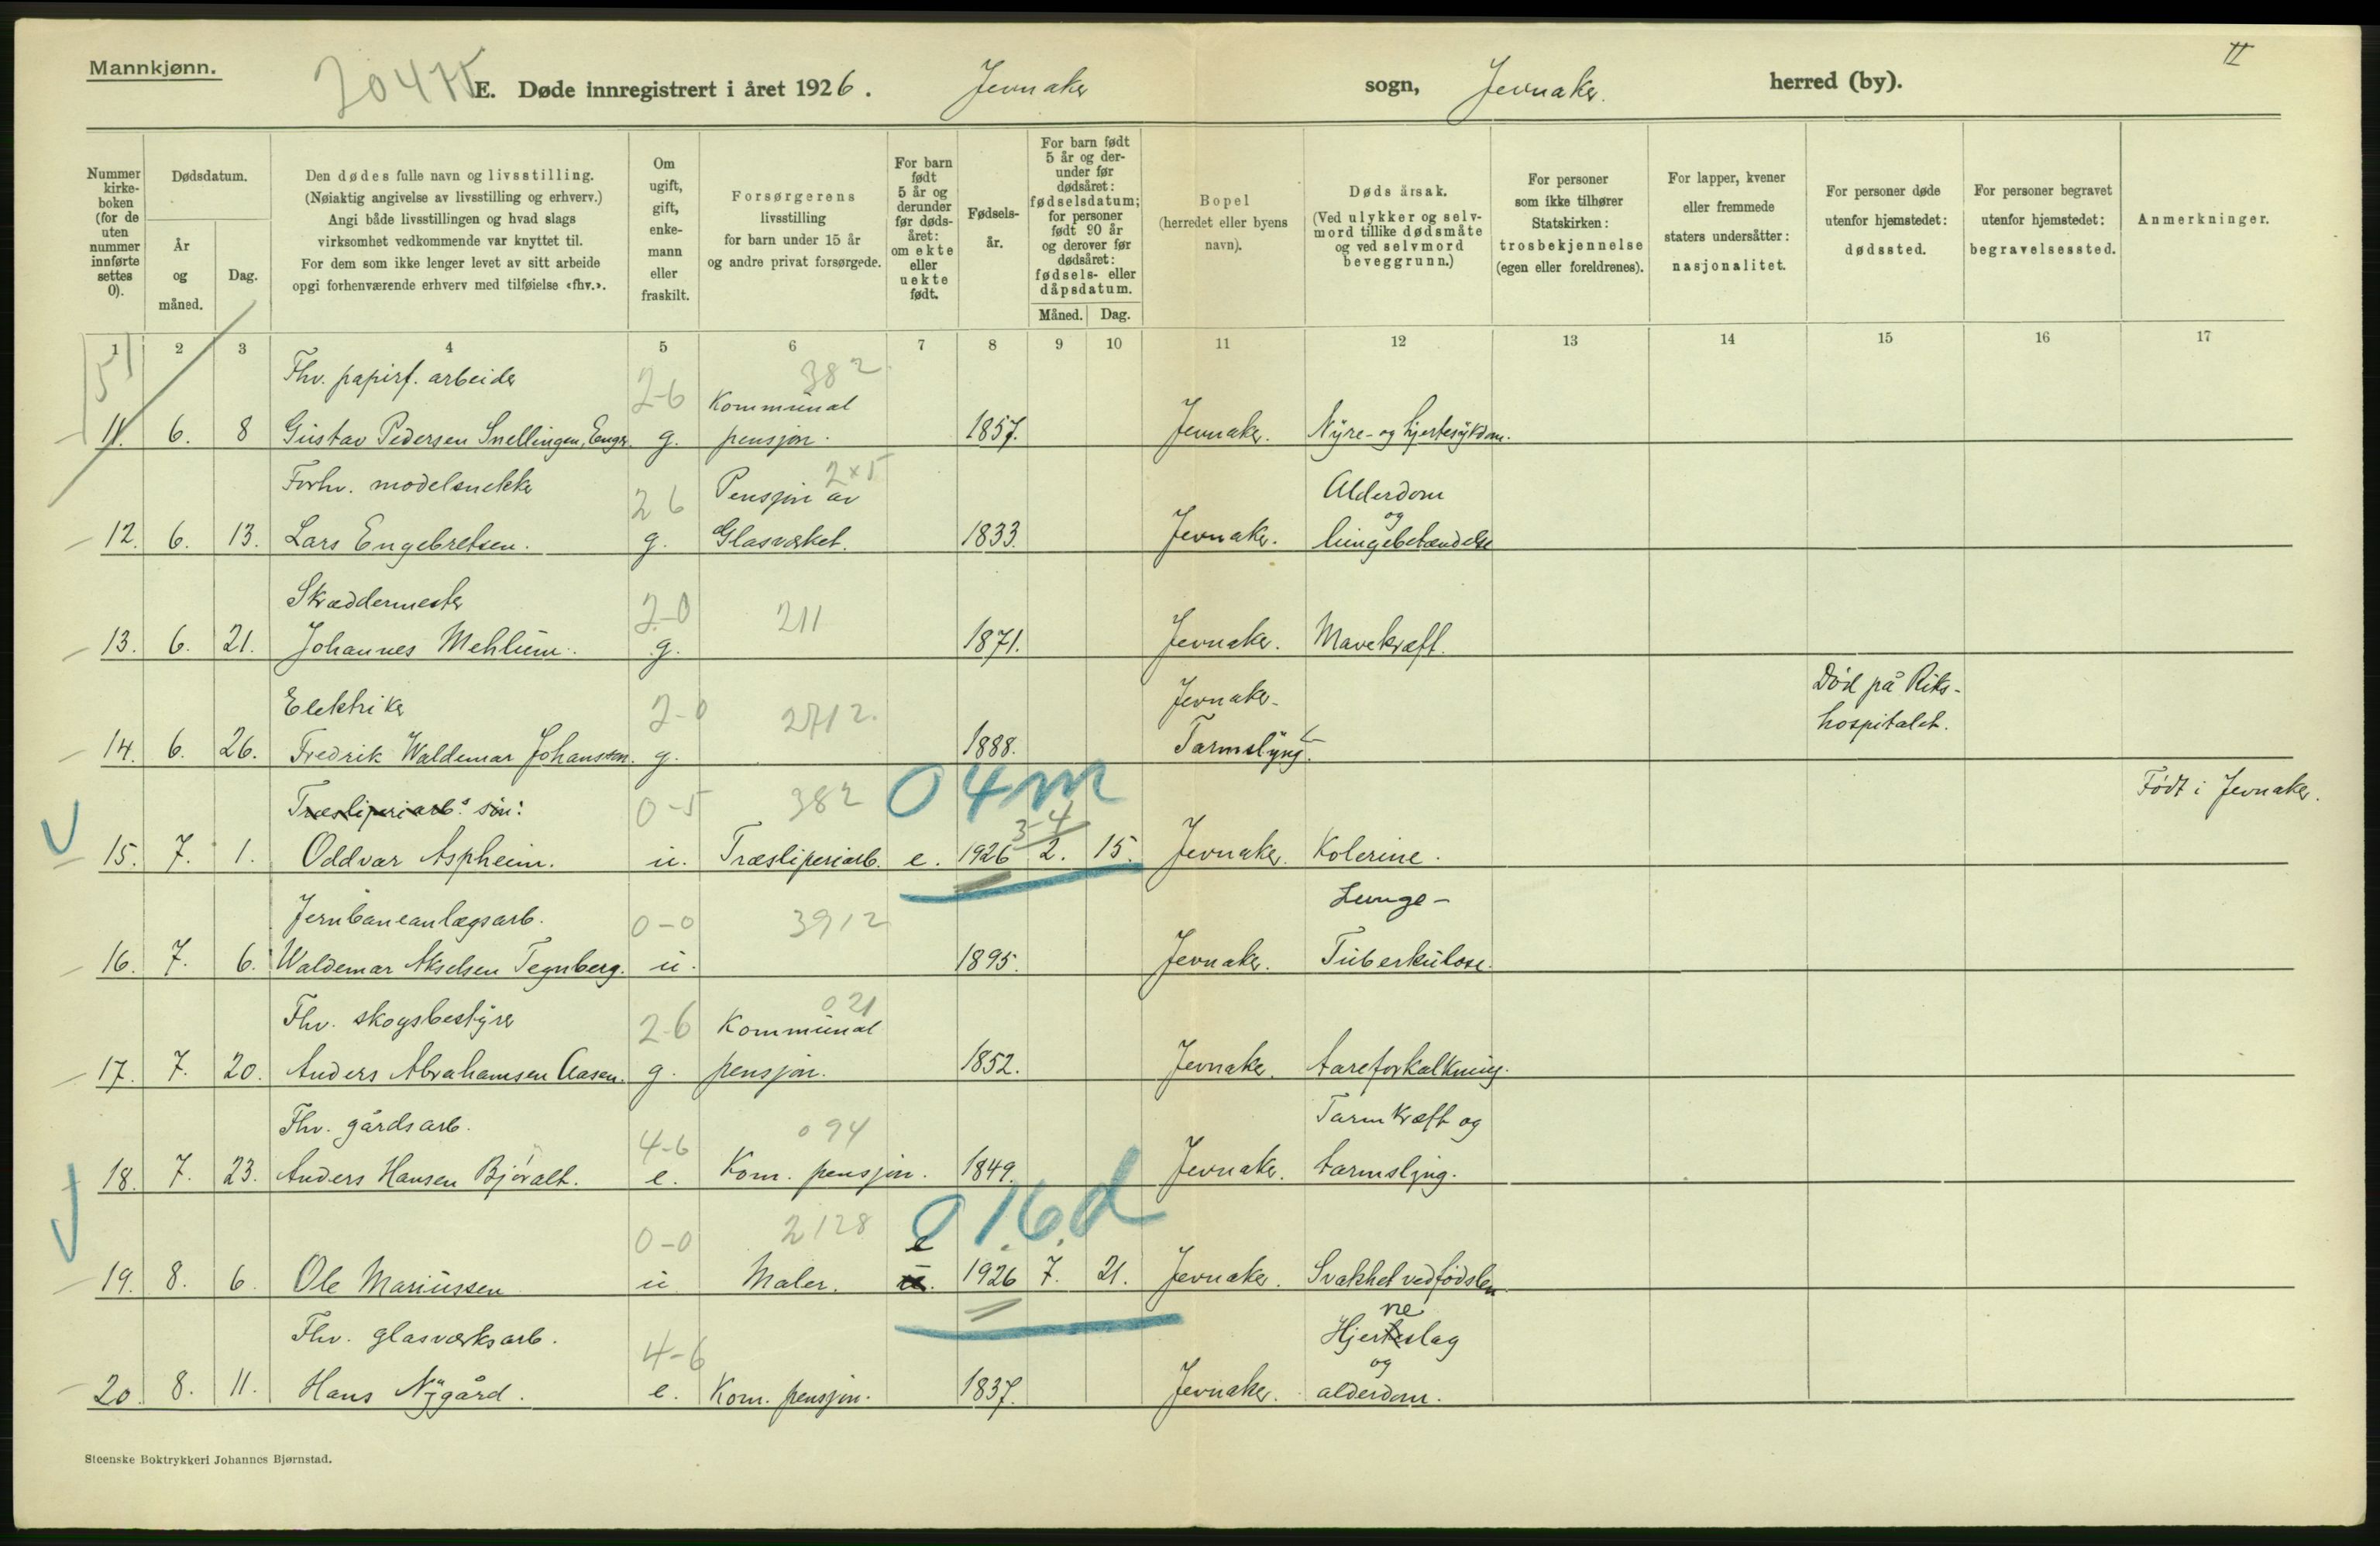 Mannkjønn.
20475
E. Døde innregistrert i året 1926. Jevnaker sogn, Jevnaker. herred (by).
II
Nummer kirke-boken (for de uten nummer innførte settes 0).
Dødsdatum.
År og måned.
Dag.
Den dødes fulle navn og livsstilling.
(Nøiaktig angivelse av livsstilling og erhverv.)
Angi både livsstillingen og hvad slags
virksomhet vedkommende var knyttet til.
For dem som ikke lenger levet av sitt arbeide
opgi forhenværende erhverv med tilføielse «fhv.».
Om ugift, gift, enke-mann eller fraskilt.
Forsørgerens
livsstilling
for barn under 15 år
og andre privat forsørgede.
For barn født 5 år og derunder før døds-året: om ekte eller uekte født.
Fødsels-år.
For barn født 5 år og der-under før dødsåret: fødselsdatum; for personer født 90 år og derover før dødsåret: fødsels- eller dåpsdatum.
Måned. Dag.
Bopel
(herredet eller byens
navn).
Døds årsak.
(Ved ulykker og selv-
mord tillike dødsmåte
og ved selvmord
beveggrunn.)
For personer
som ikke tilhører
Statskirken:
trosbekjennelse
(egen eller foreldrenes).
For lapper, kvener
eller fremmede
staters undersåtter:
nasjonalitet.
For personer døde
utenfor hjemstedet:
dødssted.
For personer begravet
utenfor hjemstedet:
begravelsessted.
Anmerkninger.
1 2 3 4 5 6 7 8 9 10 11 12 13 14 15 16 17
51
Fhv. papirf. arbeider 2-6 Kommunal 382
11. 6. 8 Gustav Pedersen Snellingen, Enger. g. pensjon. 1857. Jevnaker. Nyre- og hjertesykdom.
Forhv. modelsnekker 26 Pensjon av 2x5 Alderdom
og
12. 6. 13. Lars Engebretsen. g. Glasværket. 1833. Jevnaker. lungebetændelse
Skræddermester 2-0 211
13. 6. 21. Johannes Mehlum. g. 1871. Jevnaker. Mavekræft.
Elektriker 2-0 2712. Jevnaker. Død på Riks-
hospitalet.
14. 6. 26. Fredrik Waldemar Johanssen. g. 1888. Tarmslyng.
Træsliperiarb.s søn: 0-5 382 04m Født i Jevnaker.
3-4
15. 7. 1. Oddvar Aspheim. u. Træsliperiarb. e. 1926 2. 15. Jevnaker. Kolerine.
Jernbaneanlægsarb. 0-0 3912 Lunge-
16. 7. 6. Waldemar Akselsen Tegnberg. u. 1895. Jevnaker. Tuberkulose.
Fhv. skogsbestyrer 2-6 Kommunal 021
17. 7. 20. Anders Abrahamsen Aasen. g. pensjon. 1852. Jevnaker. Aareforkalkning.
Fhv. gårdsarb. 4-6 094 Tarmkræft og
18. 7. 23. Anders Hansen Bjøralt. e. Kom. pensjon. 1849. Jevnaker. tarmslyng.
0-0 2128 0 16 d
e
19. 8. 6. Ole Mariussen u. Maler. u. 1926 7. 21. Jevnaker. Svakhet ved fødslen.
Fhv. glasværksarb. 4-6 ne
Hjerteslag
og
20. 8. 11. Hans Nygård. e. Kom. pensjon. 1837. Jevnaker. alderdom.
Steenske Boktrykkeri Johannes Bjørnstad.